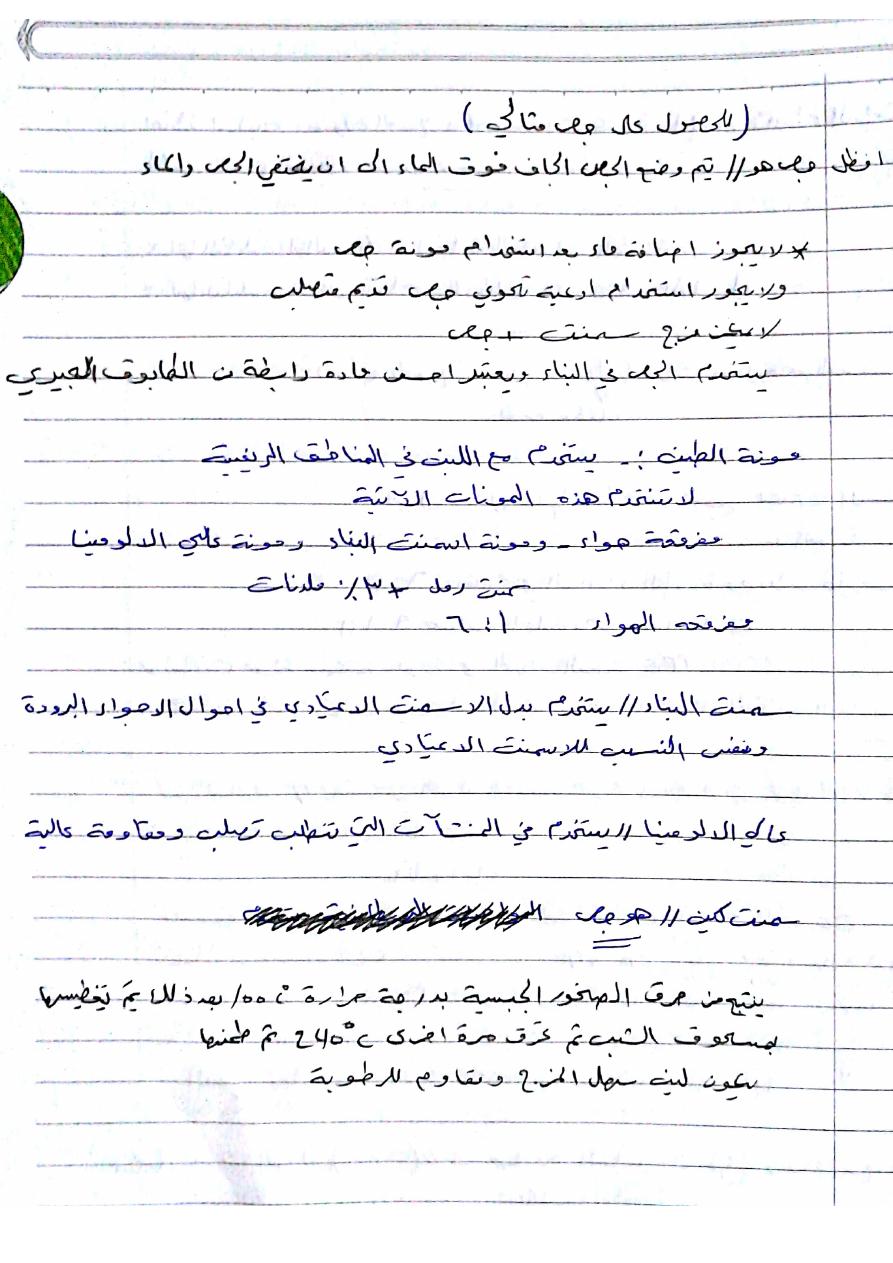 (للحصول على جص مثالي)
افظل جص هو // يتم وضع الجص الجاف فوق الماء الى ان يختفي الجص والماء
* لا يجوز اضافة ماء بعد استخدام مونة جص
ولا يجوز استخدام اوعية تحوي جص قديم متصلب
لا يمكن مزج سمنت + جص
يستخدم الجص في البناء ويعتبر احسن مادة رابطة ن الطابوق الجيري
مونة الطين :- يستخدم مع اللبن في المناطق الريفية
لا تستخدم هذه المونات الآتية
مفرقحة هواء - ومونة اسمنت البناء ومونة عالي الالومينا
سمنت رمل + 3٪ ملدنات
مفرقحه الهواء 1:6
سمنت البناء // يستخدم بدل الاسمنت الاعتيادي في احوال الاجواء البرودة
ونفس النسب للاسمنت الاعتيادي
عالي الالومينا // يستخدم في المنشآت التي تتطلب تصلب ومقاومة عالية
سمنت كين // هو جص
ينتج من حرق الصخور الجبسية بدرجة حرارة بعد ذلك يتم تغطيسها
بمسحوق الشب ثم تحرق مرة اخرى ثم طحنها
يكون لين سهل المزج ومقاوم للرطوبة